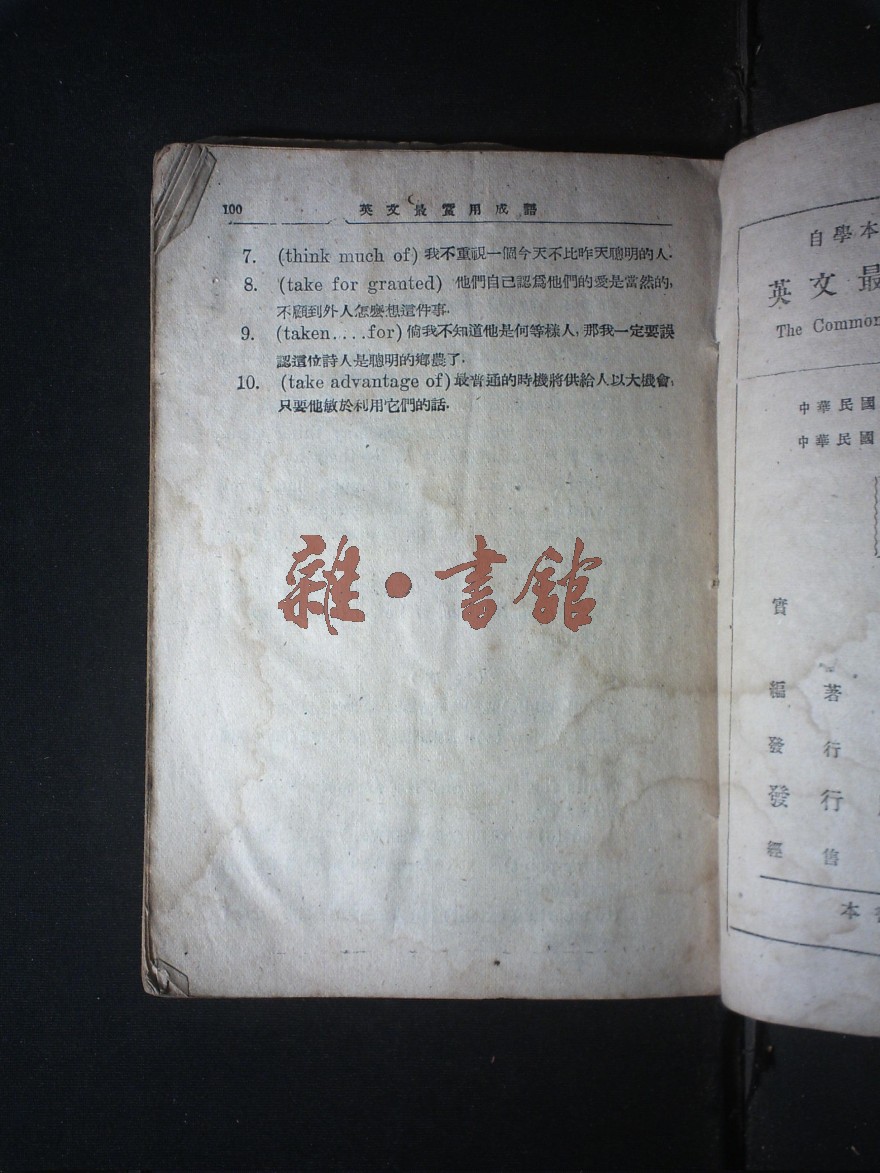 100 英文最實用成語
7. (think much of) 我不重視一個今天不比昨天聰明的人.
8. (take for granted) 他們自己認爲他們的愛是當然的,
不顧到外人怎麽想這件事.
9. (taken....for) 倘我不知道他是何等樣人, 那我一定要誤
認這位詩人是聰明的鄉農了.
10. (take advantage of) 最普通的時機將供給人以大機會,
只要他敏於利用它們的話.
雜·書館
自學本
英文最
The Common
中華民國
中華民國
實
編著
發行
發行
經售
本